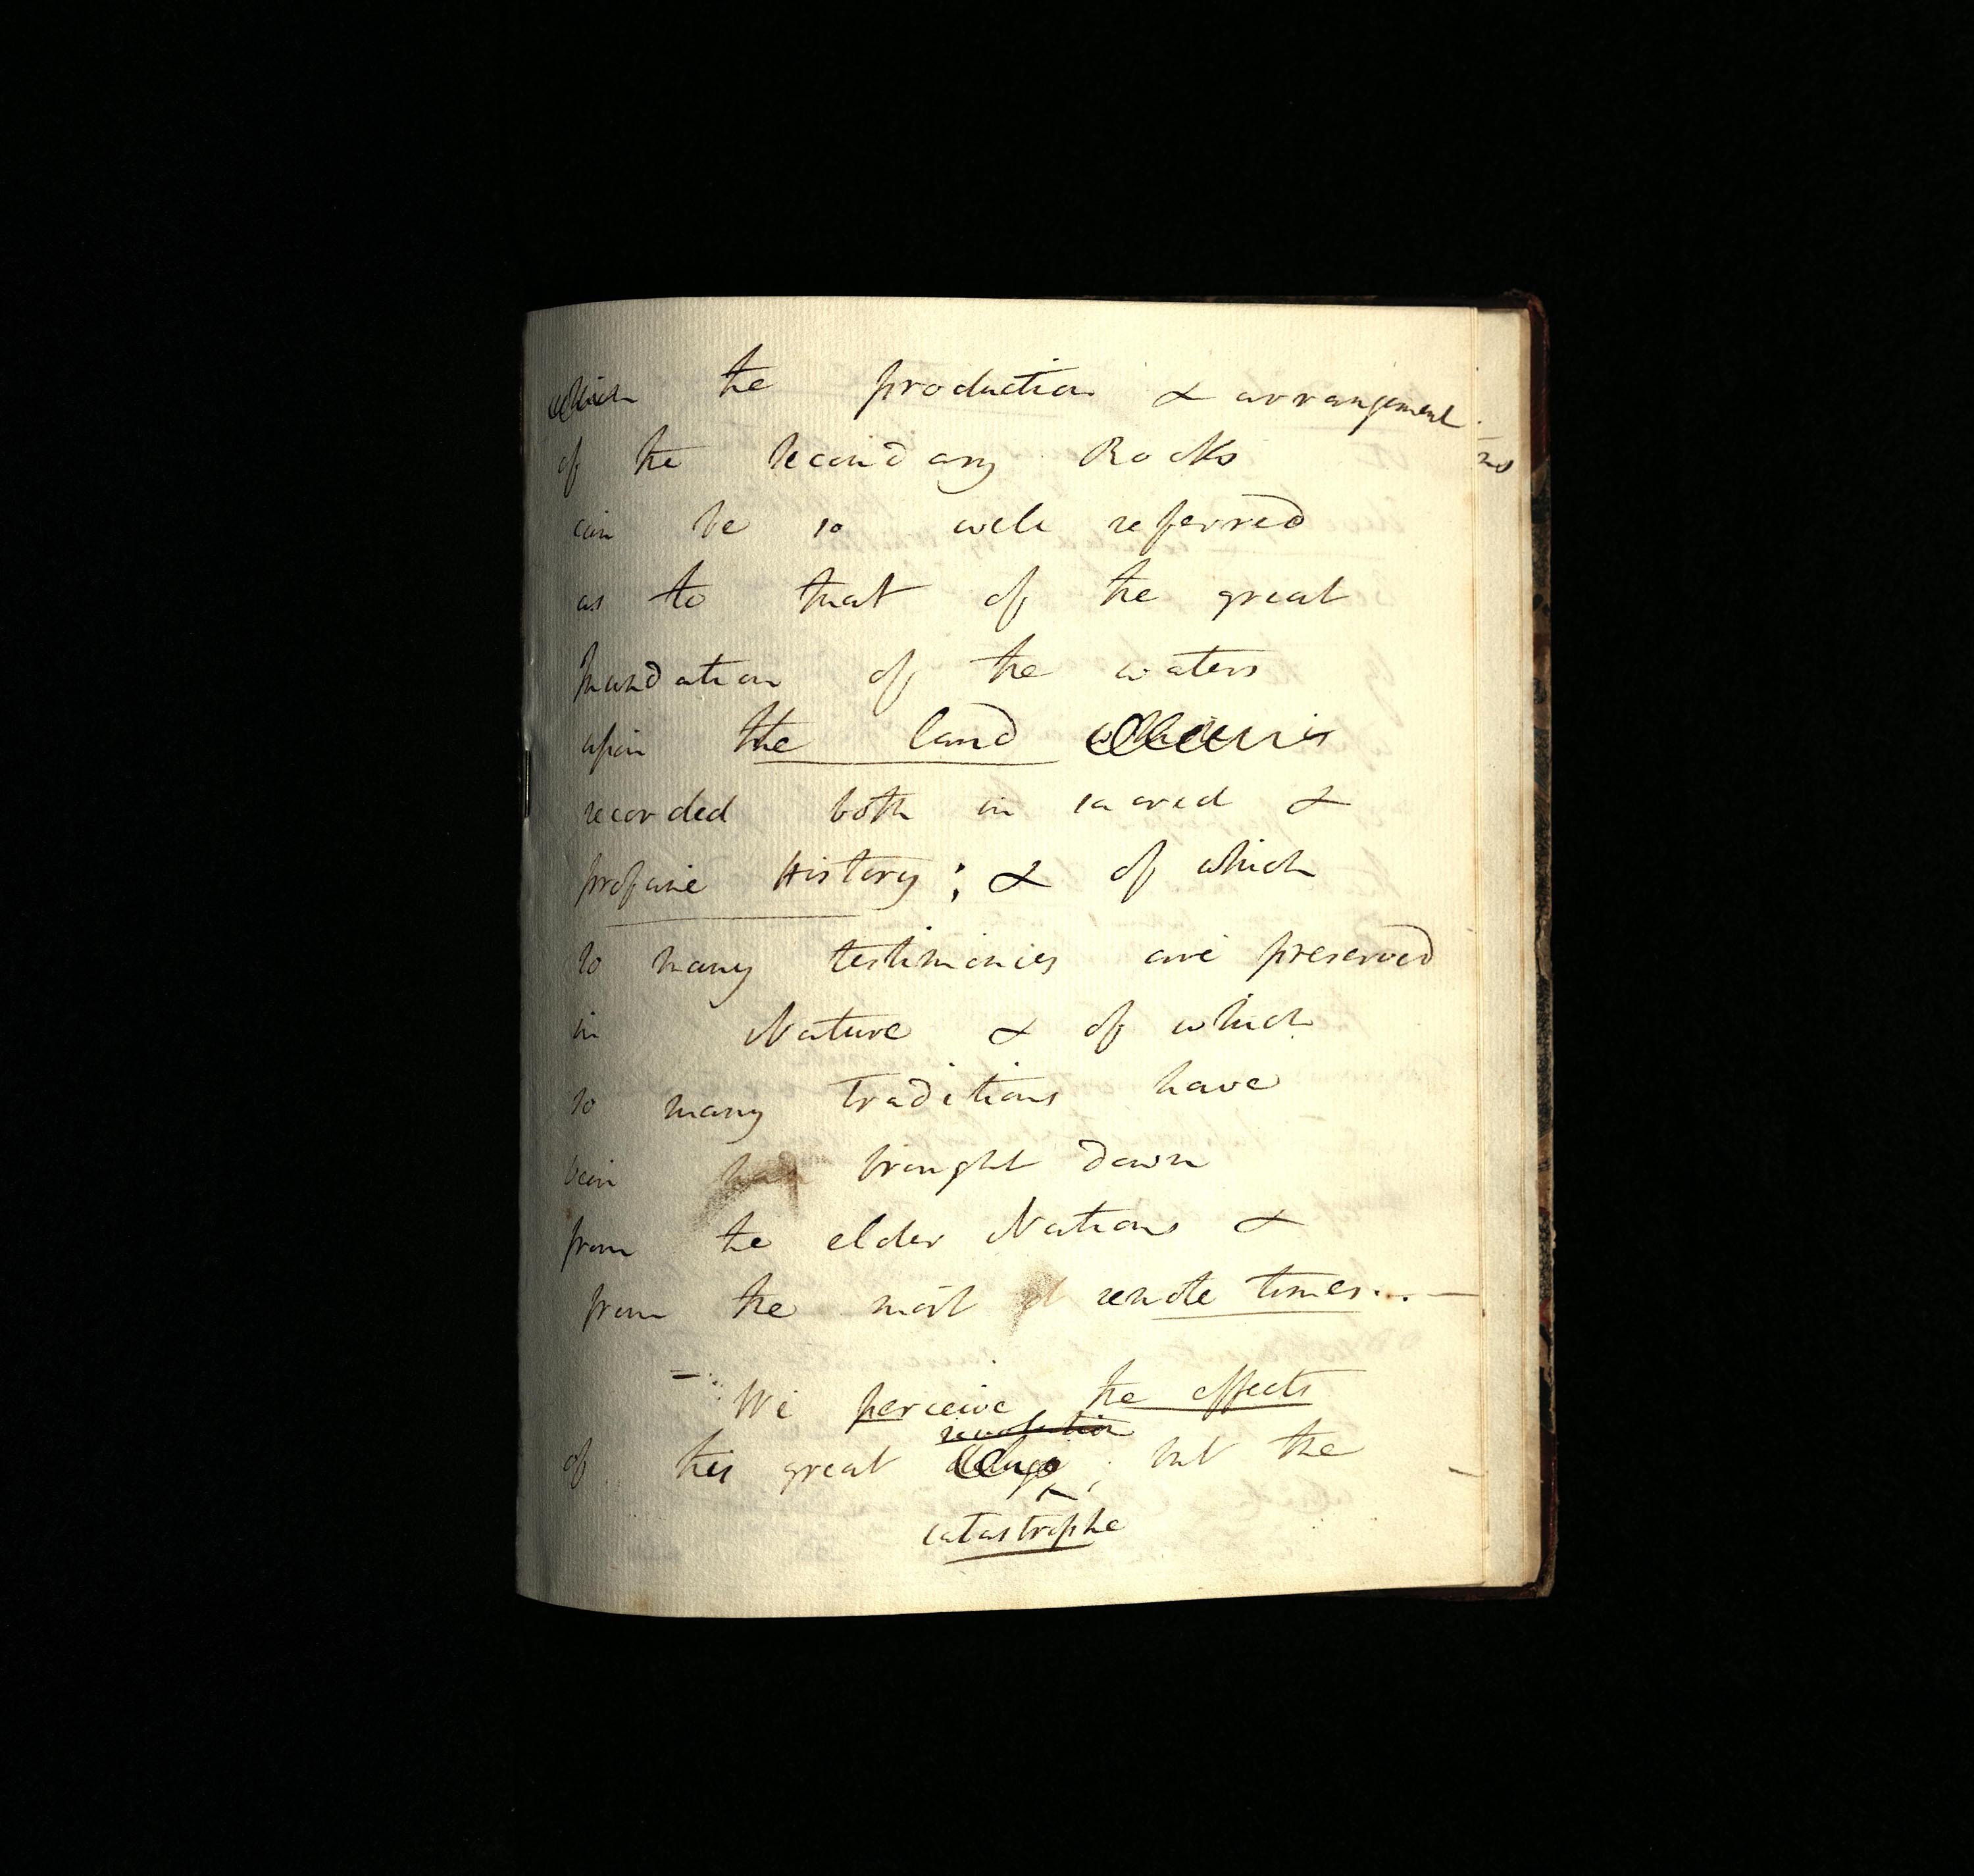 the production & arrangement
of the Secondary Rocks
can be so well referred
as to that of the great
Inundation of the waters
upon the land is
recorded both in sacred &
profane History; & of which
so many testimonies are preserved
in Nature & of which
so many traditions have
been brought down
from the elder Nations &
from the most remote times...—
= We perceive the effects
revolution
of this great deluge; but the
catastrophe